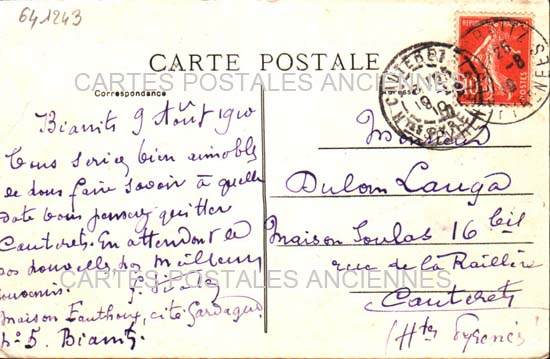 641243
CARTE POSTALE
CARTES POSTALES ANCIENNES
Correspondance
Biarritz 9 Août 1910
Vous seriez bien aimable
de nous faire savoir à quelle
date vous pensez quitter
Cauterets. En attendant de
vos nouvelles, nos meilleurs
souvenirs.
Maison Fauthoux, cité Gardague
No 5. Biarritz
Monsieur
Dulom Langa
Maison Soulas 16 bis
rue de la Raillère
Cauterets
(Htes Pyrénées)
CARTES POSTALES ANCIENNES
CAUTERETS
BIARRITZ
10
POSTES